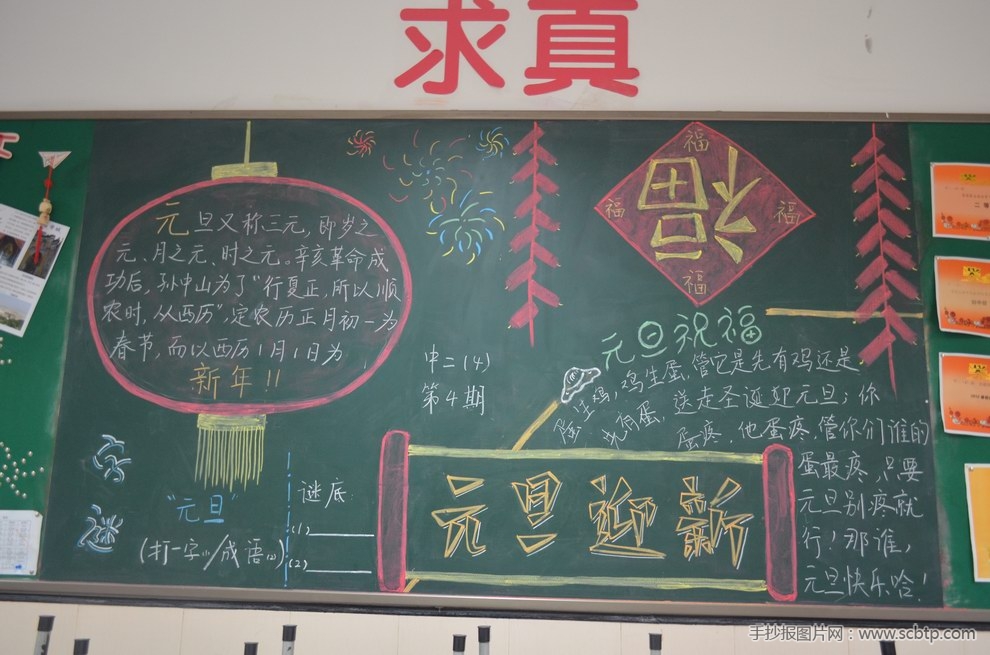 求真
元旦又称三元,即岁之
元、月之元、时之元。辛亥革命成
功后,孙中山为了"行夏正,所以顺
农时,从西历",定农历正月初一为
春节,而以西历1月1日为
新年!!
中二(4)
第4期
福
福
福
福
福
元旦祝福
蛋生鸡,鸡生蛋,管它是先有鸡还是
先有蛋,送走圣诞迎元旦;你
蛋疼,他蛋疼,管你们谁的
蛋最疼,只要
元旦别疼就
行!那谁,
元旦快乐哈!
字谜
"元旦"
(打一字(1)/成语(2))
谜底:
(1)
(2)
元旦迎新
手抄报图片网:www.scbtp.com